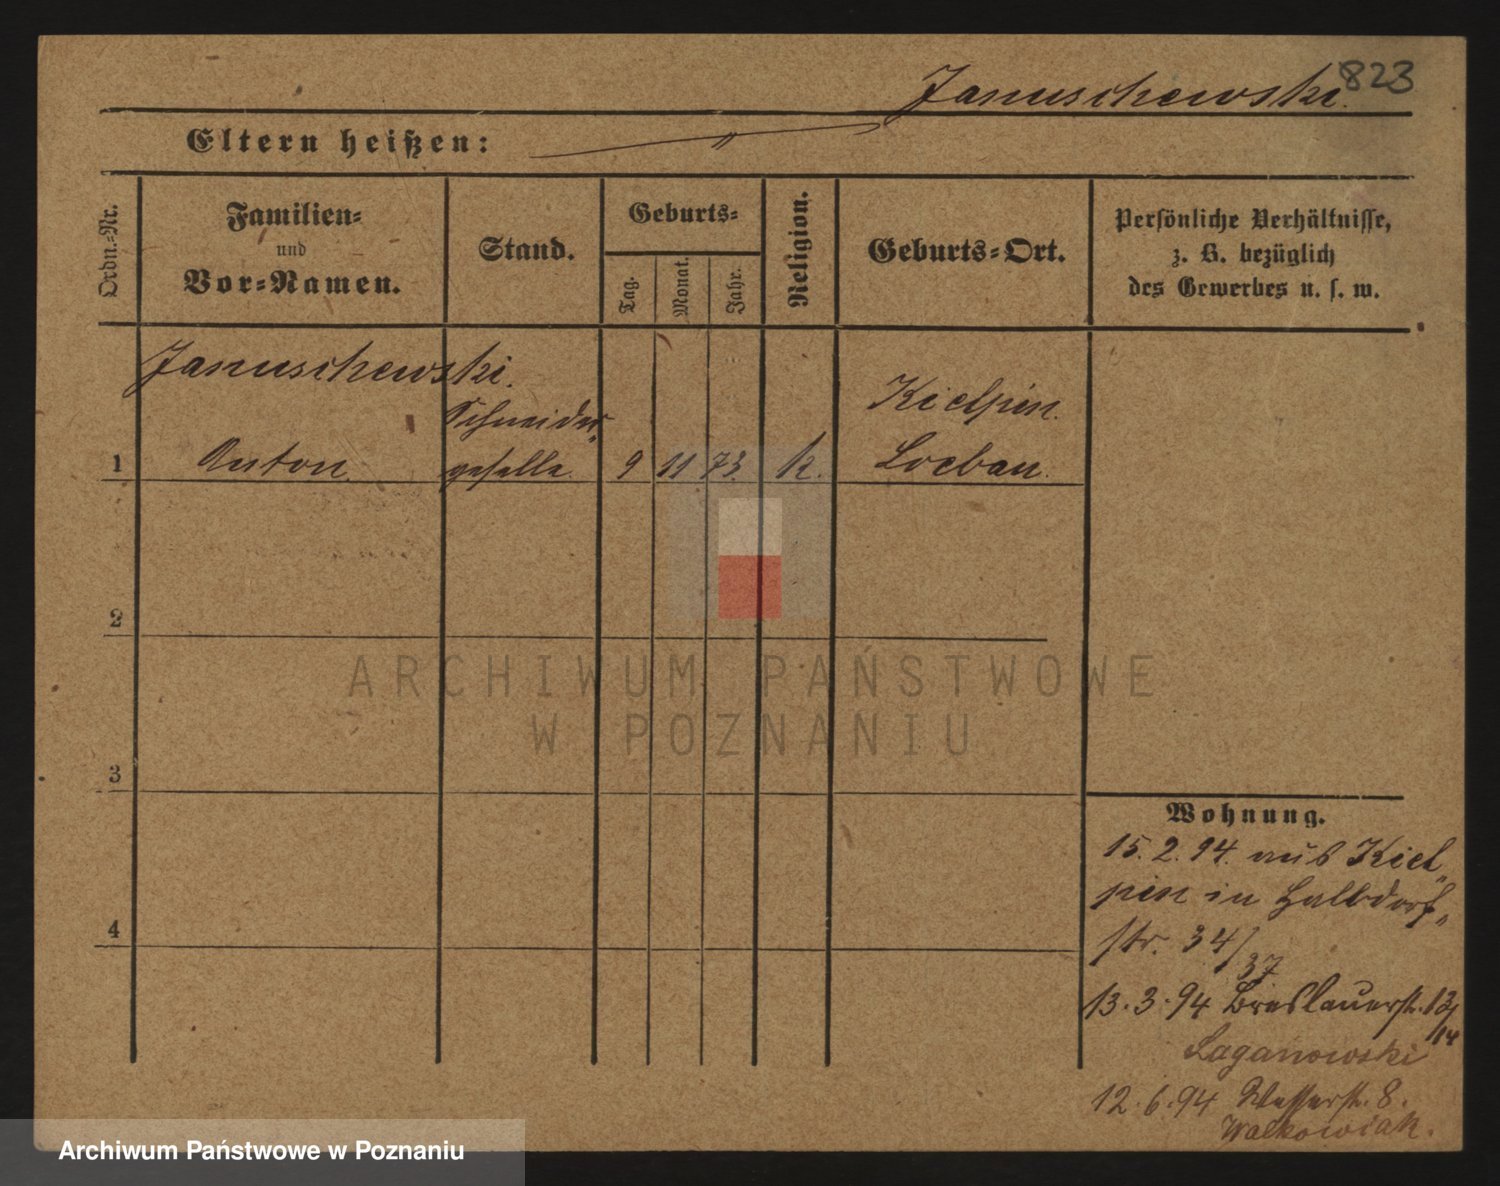 823
Januschewski.
Eltern heißen: "
Ordn.-Nr.
Familien-
und
Vor-Namen.
Stand.
Geburts-
Tag.
Monat.
Jahr.
Religion.
Geburts-Ort.
Persönliche Verhältnisse,
z. B. bezüglich
des Gewerbes u. s. w.
Januschewski.
Schneider"
Kielpin.
1 Anton. geselle. 9 11 73. k. Loebau.
2
3
4
ARCHIWUM PAŃSTWOWE
W POZNANIU
Wohnung.
15. 2. 94. aus Kiel"
pin in Halbdorf"
str. 34/
37
13. 3. 94 Breslauerstr. 13/
14
Laganowski
12. 6. 94 Wasserstr. 8.
Walkowiak.
Archiwum Państwowe w Poznaniu